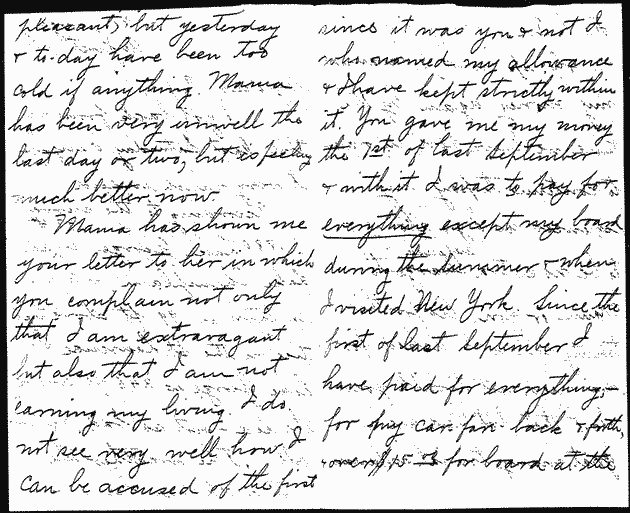 pleasant, but yesterday
& to-day have been too
cold if anything. Mama
has been very unwell the
last day or two, but is feeling
much better now.
Mama has shown me
your letter to her in which
you complain not only
that I am extravagant
but also that I am not
earning my living. I do
not see very well how I
can be accused of the first
since it was you & not I
who named my allowance
& I have kept strictly within
it. You gave me my money
the 1st of last September
& with it I was to pay for
everything except my board
during the summer & when
I visited New York. Since the
first of last September I
have paid for everything,–
for my car fare back & forth,
over $15 for board at the